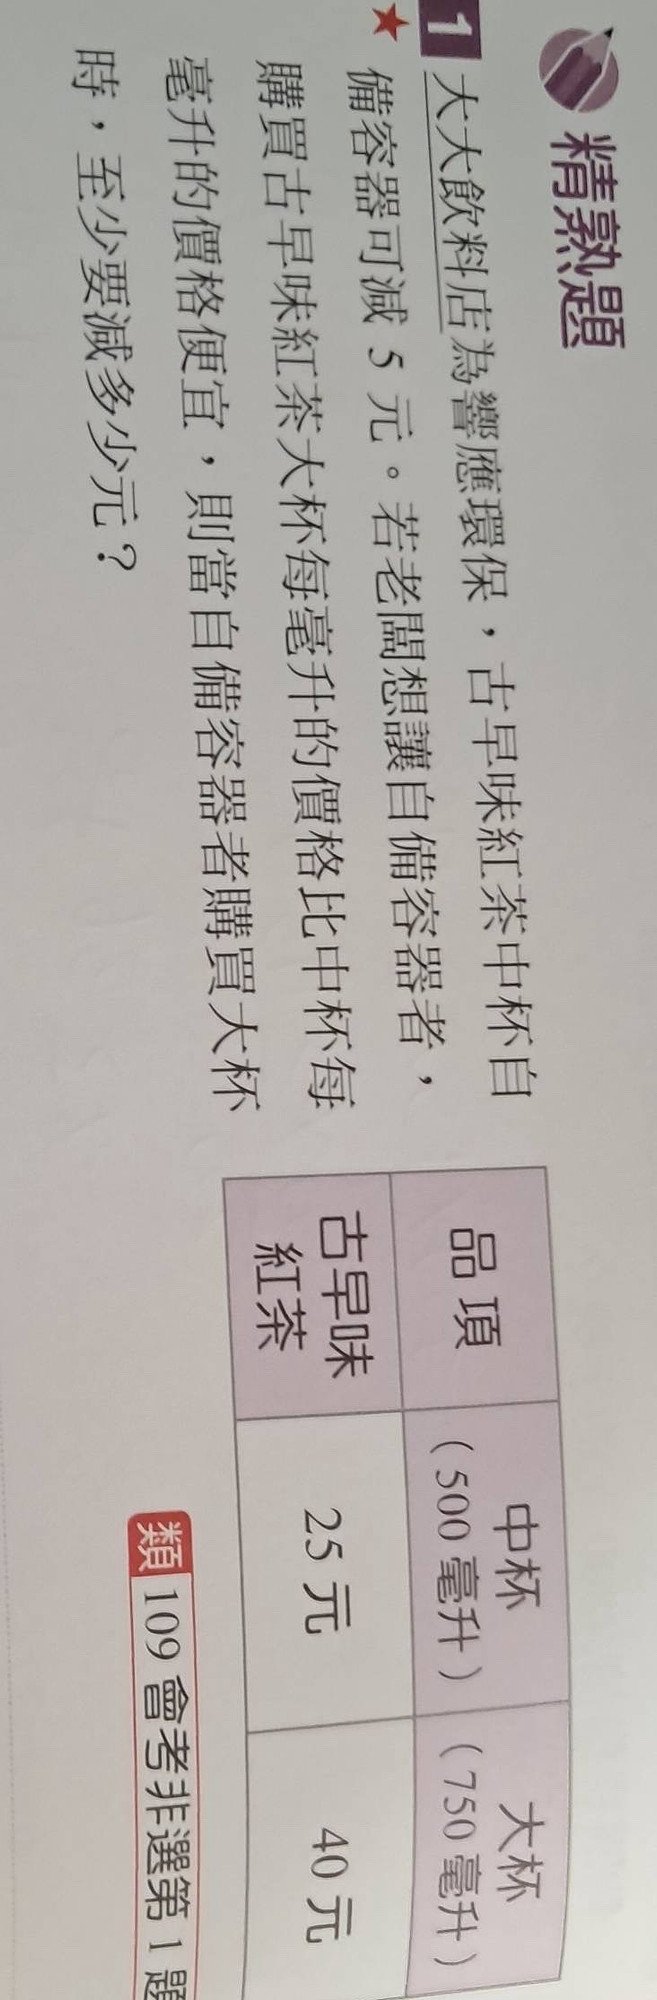 精熟題
1 大大飲料店為響應環保，古早味紅茶中杯自
★ 備容器可減 5 元。若老闆想讓自備容器者，
購買古早味紅茶大杯每毫升的價格比中杯每
毫升的價格便宜，則當自備容器者購買大杯
時，至少要減多少元？
品項 中杯 大杯
（500 毫升） （750 毫升）
古早味 25 元 40 元
紅茶
類 109 會考非選第 1 題